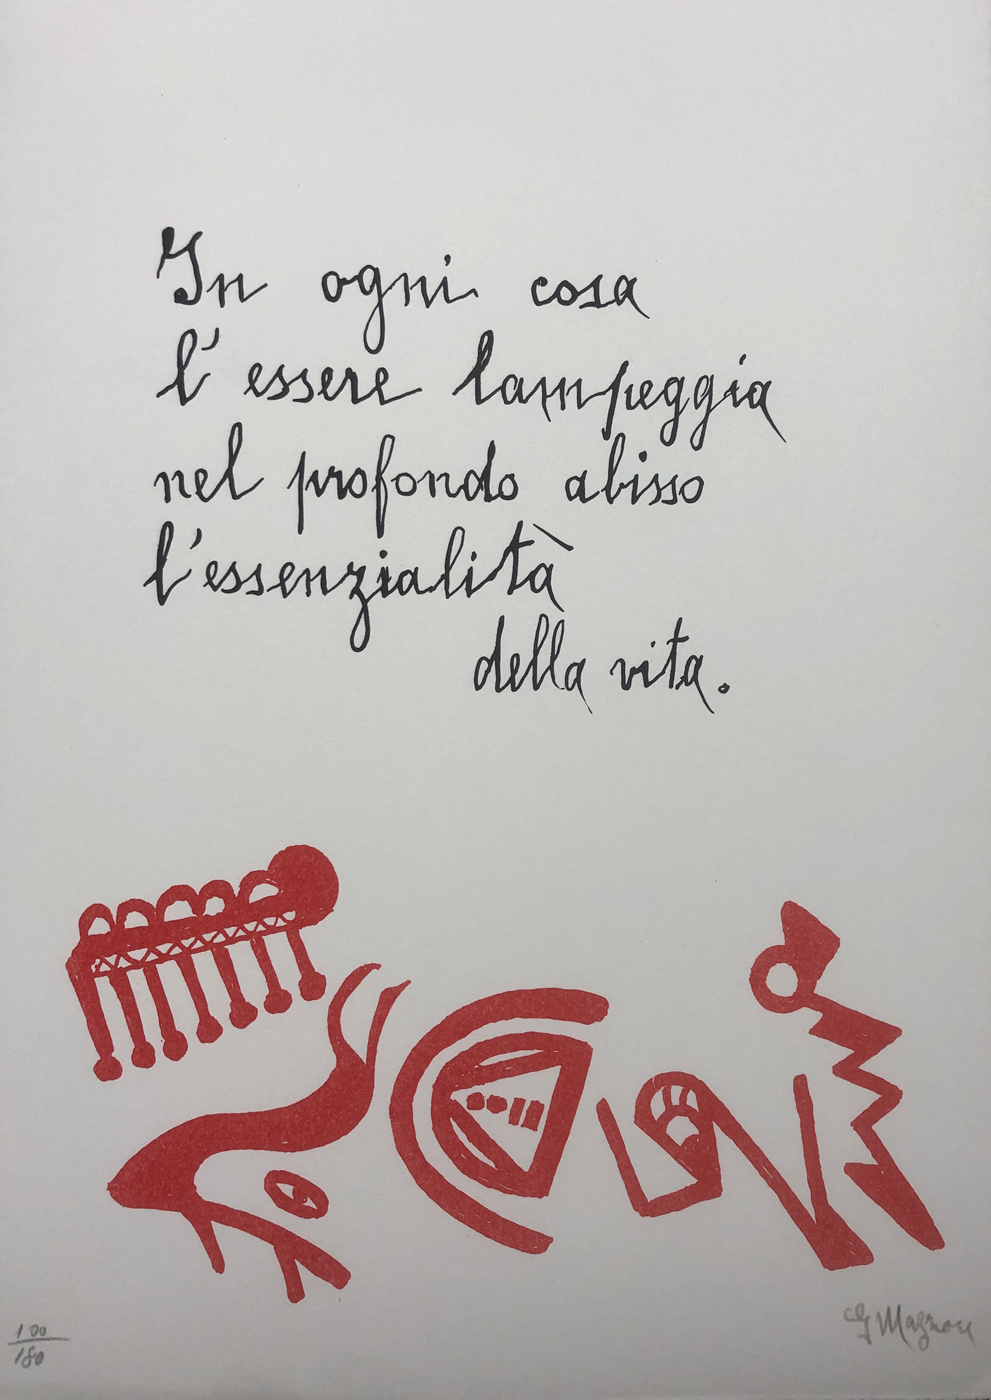 In ogni cosa
l'essere lampeggia
nel profondo abisso
l'essenzialità
della vita.
100
180
G Magnoni